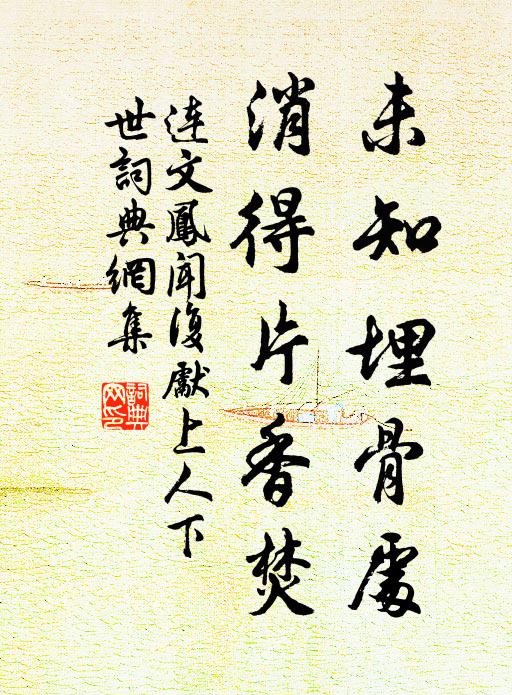 未知埋骨處
消得片香焚
連文鳳聞復獻上人下
世詞典網集
詞典
网印